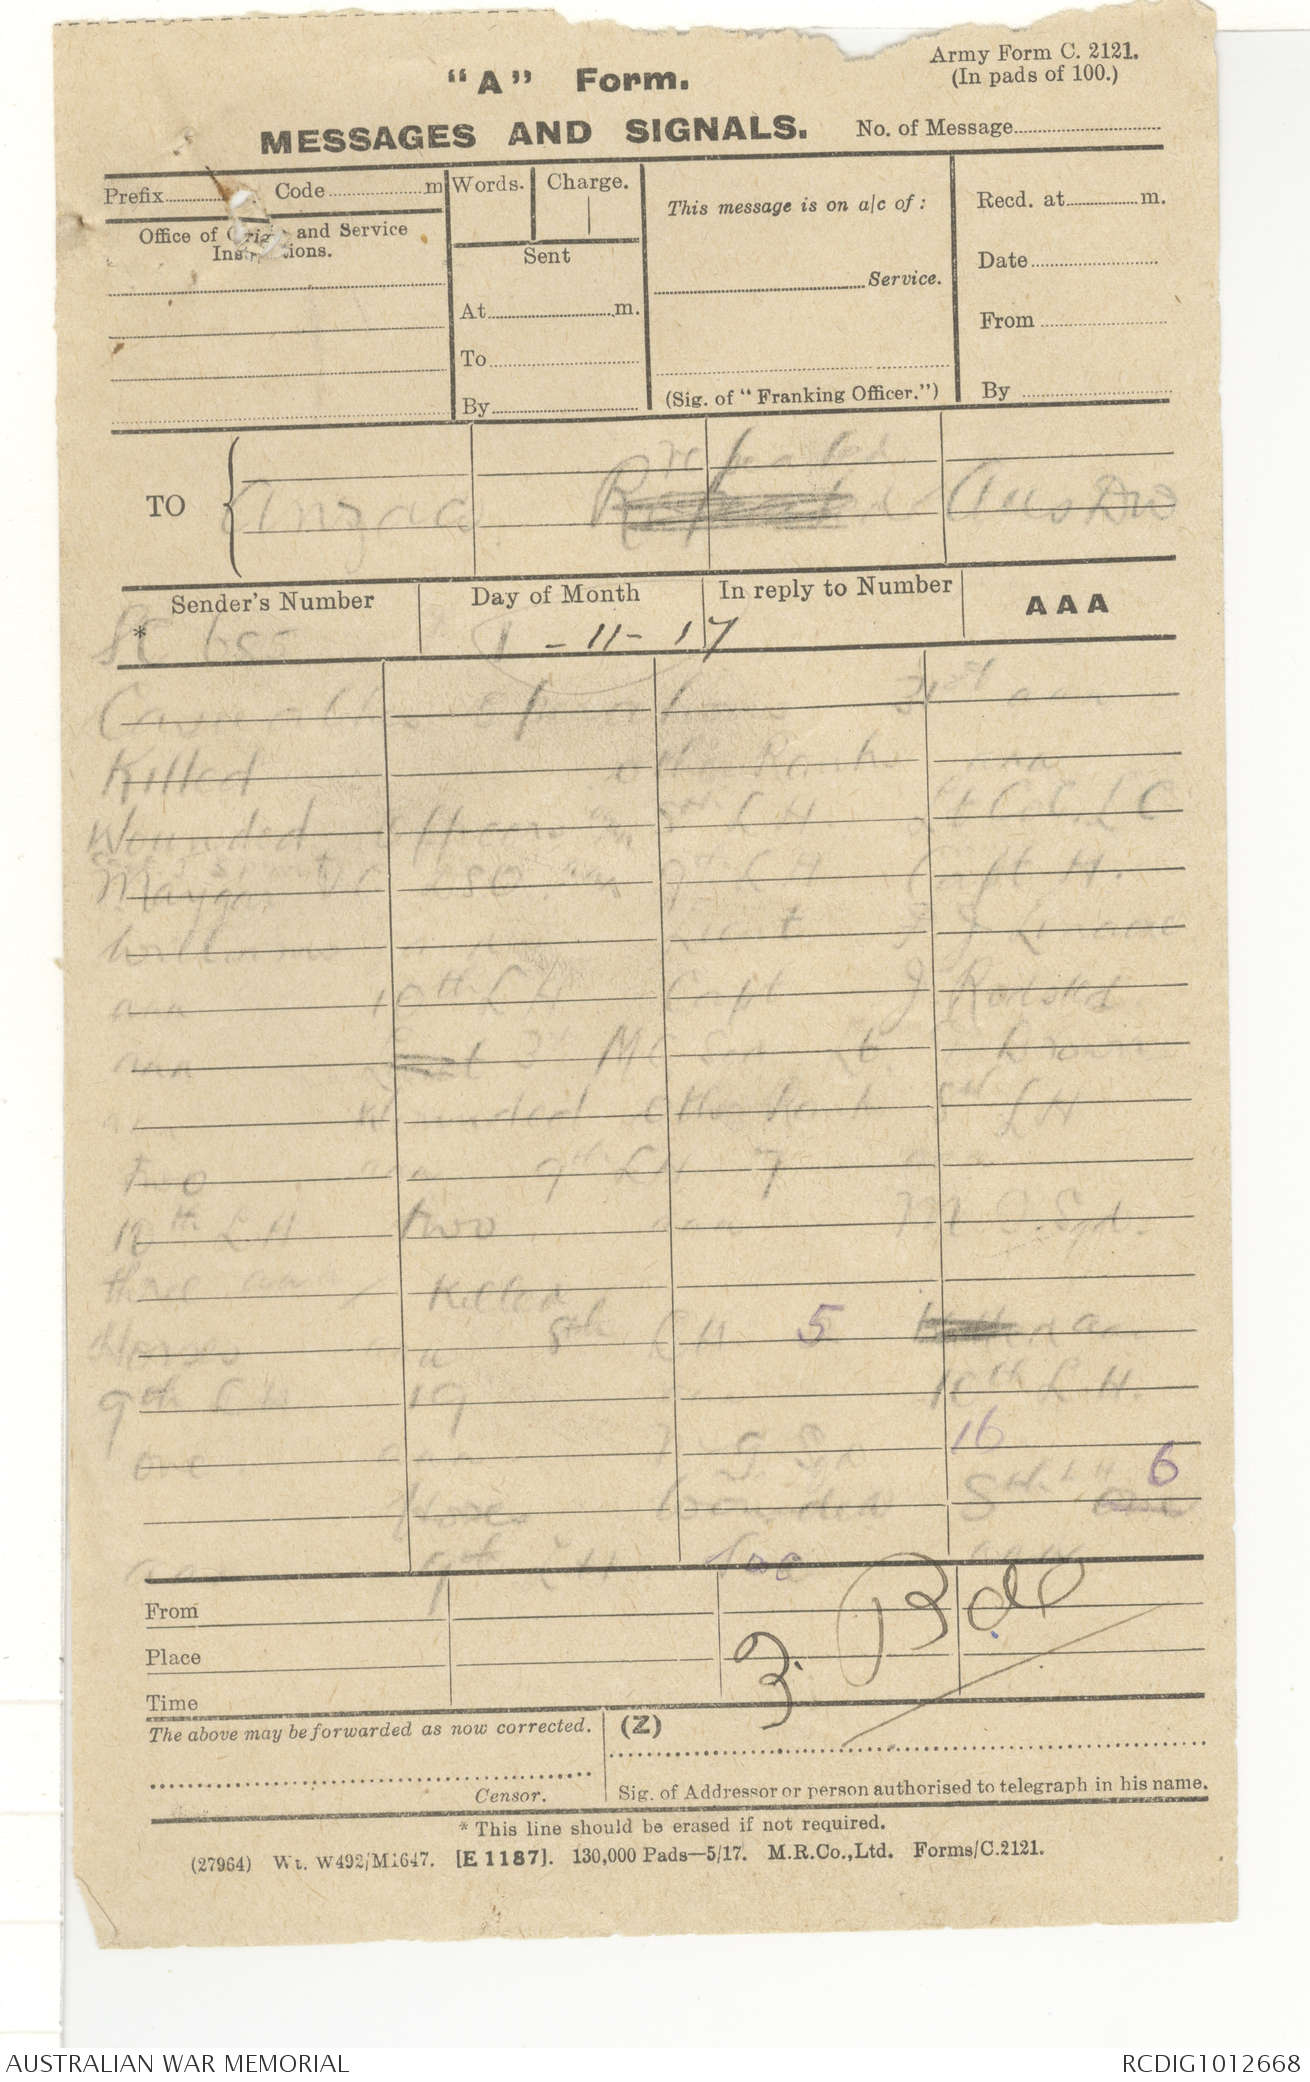 "A" Form.
Army Form C. 2121.
(In pads of 100.)
MESSAGES AND SIGNALS.
No. of Message
Prefix Code m
Words. Charge.
This message is on a/c of :
Recd. at m.
Office of Origin and Service
Instructions.
Sent
Date
Service.
At m.
From
To
(Sig. of "Franking Officer.")
By
By
repeated
TO Anzac Aus Div
Sender's Number Day of Month In reply to Number AAA
* SC 655 1-11-17
Casualties Operations 31st aaa
Killed other Ranks aaa
Wounded Officers aaa LH Lt Col. L C
Maygar VC DSO aaa 9th LH Capt H.
Williams aaa Lieut
aaa 10th LH Capt J
aaa 3rd MG Sqn Lt
aaa Wounded other Ranks 8th LH
two aaa 9th LH 7 aaa
10th LH two aaa M G. Sqd.
three aaa / Killed
Horses aaa 8th LH 5 aaa
9th LH 19 10th L.H.
one aaa G Sqn 16
Horses wounded 8th LH one 6
aaa 9th LH two aaa
From
Place
3. Bde
Time
The above may be forwarded as now corrected. (Z)
Censor. Sig. of Addressor or person authorised to telegraph in his name.
* This line should be erased if not required.
(27964) Wt. W492/M1647. [E 1187]. 130,000 Pads—5/17. M.R.Co.,Ltd. Forms/C.2121.
AUSTRALIAN WAR MEMORIAL RCDIG1012668